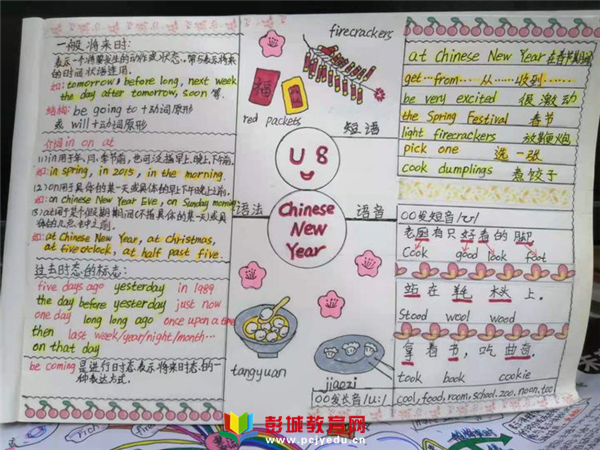 一般将来时:
表示一个将要发生的动作或状态。常与表示将来
的时间状语连用。
如: tomorrow, before long, next week
the day after tomorrow, soon 等.
结构: be going to + 动词原形
或 will + 动词原形
介词 in on at
(1) in用于年、月、季节前,也可泛指早上,晚上,下午前。
如: in spring, in 2015, in the morning.
(2) on用于具体的某一天或具体的早上下午晚上前。
如: on Chinese New Year Eve, on Sunday morning
如: at Chinese New Year, at Christmas,
at five o'clock, at half past five.
过去时态的标志:
five days ago yesterday in 1989
the day before yesterday just now
one day long long ago once upon a time
then last week/year/night/month...
on that day
be coming 是进行时态表示将来时态的一
种表达方式.
firecrackers
福
red packets
短语
U8
Chinese
New
Year
语法
语音
tangyuan
jiaozi
at Chinese New Year 在春节期间
get...from... 从……收到……
be very excited 很激动
the Spring Festival 春节
light firecrackers 放鞭炮
pick one 选一张
cook dumplings 煮饺子
OO发短音/ʊ/
老厨有只好看的脚
Cook good look foot
站在羊毛木头上。
Stood wool wood
拿着书,吃曲奇。
took book cookie
OO发长音/u:/
cool, food, room, school, zoo, noon, too
rich
彭城教育网
www.pcjyedu.cn